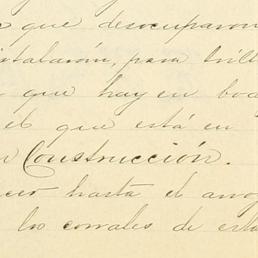 que desocuparon
stalación, para
que hay en
el que está en
Construcción.
hasta el
los corrales de